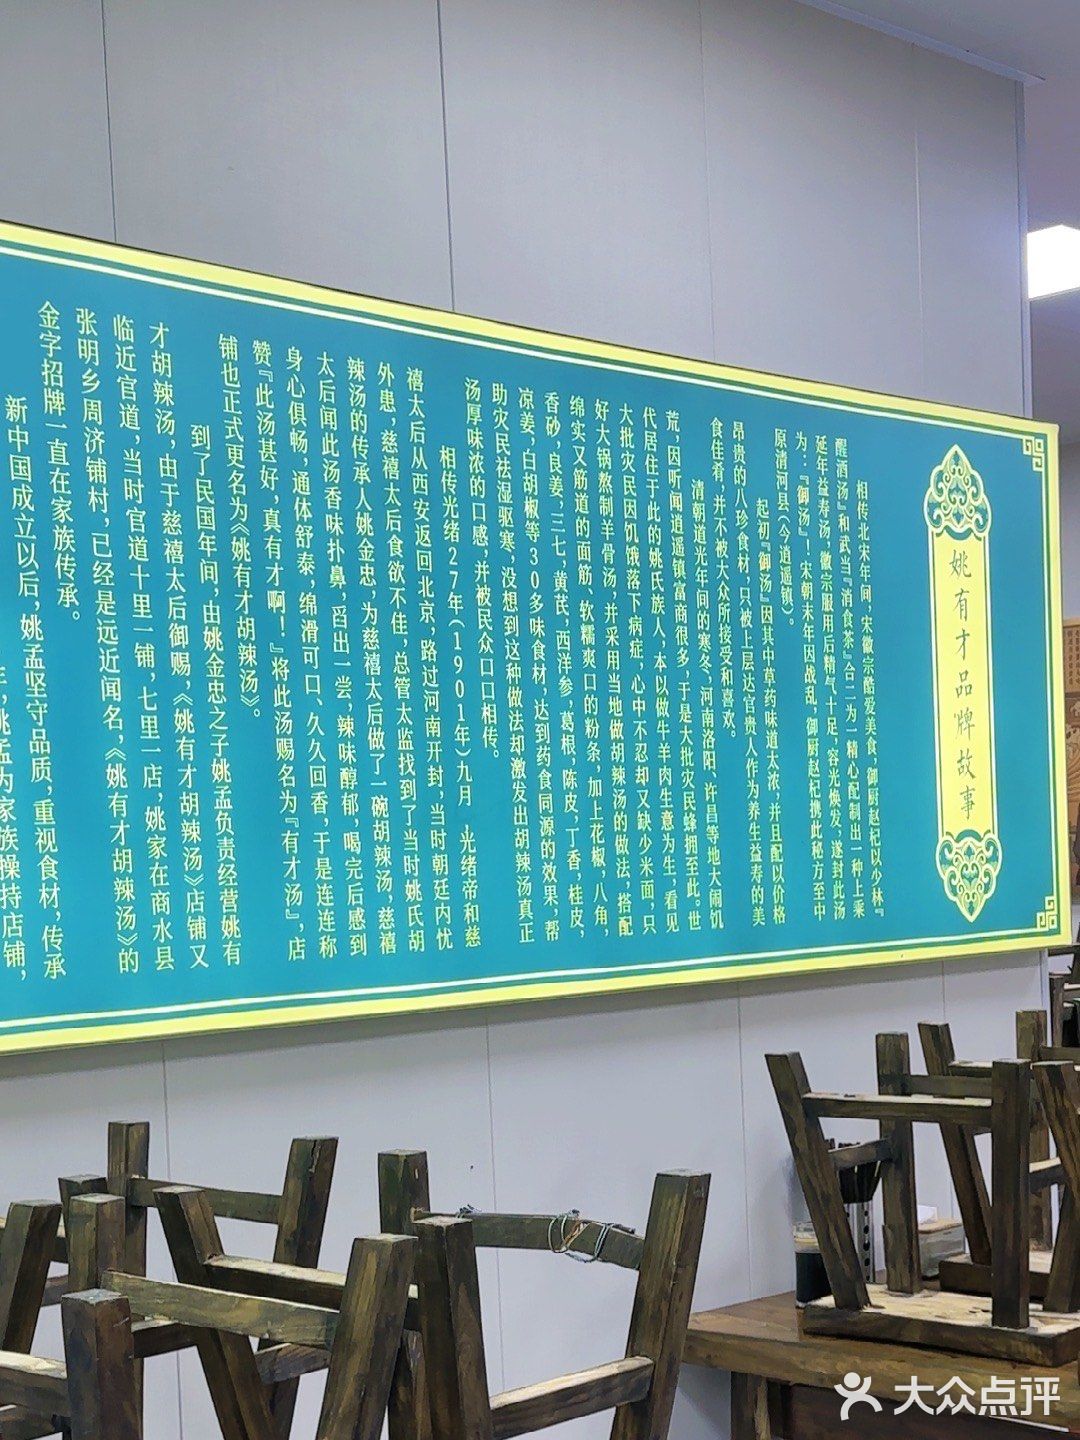 姚有才品牌故事
相传北宋年间，宋徽宗酷爱美食，御厨赵杞以少林『
醒酒汤』和武当『消食茶』合二为一精心配制出一种上乘
延年益寿汤，徽宗服用后精气十足，容光焕发，遂封此汤
为：『御汤』！宋朝末年因战乱，御厨赵杞携此秘方至中
原清河县（今逍遥镇）。
起初『御汤』因其中草药味道太浓，并且配以价格
昂贵的八珍食材，只被上层达官贵人作为养生益寿的美
食佳肴，并不被大众所接受和喜欢。
清朝道光年间的寒冬，河南洛阳、许昌等地大闹饥
荒，因听闻道遥镇富商很多，于是大批灾民蜂拥至此。世
代居住于此的姚氏族人，本以做牛羊肉生意为生，看见
大批灾民因饥饿落下病症，心中不忍却又缺少米面，只
好大锅熬制羊骨汤，并采用当地做胡辣汤的做法，搭配
绵实又筋道的面筋、软糯爽口的粉条，加上花椒，八角，
香砂，良姜，三七，黄芪，西洋参，葛根，陈皮，丁香，桂皮，
凉姜，白胡椒等30多味食材，达到药食同源的效果，帮
助灾民祛湿驱寒，没想到这种做法却激发出胡辣汤真正
汤厚味浓的口感，并被民众口口相传。
相传光绪27年（1901年）九月，光绪帝和慈
禧太后从西安返回北京，路过河南开封，当时朝廷内忧
外患，慈禧太后食欲不佳，总管太监找到了当时姚氏胡
辣汤的传承人姚金忠，为慈禧太后做了一碗胡辣汤，慈禧
太后闻此汤香味扑鼻，舀出一尝，辣味醇郁，喝完后感到
身心俱畅，通体舒泰，绵滑可口、久久回香，于是连连称
赞『此汤甚好，真有才啊！』将此汤赐名为『有才汤』，店
铺也正式更名为《姚有才胡辣汤》。
到了民国年间，由姚金忠之子姚孟负责经营姚有
才胡辣汤，由于慈禧太后御赐，《姚有才胡辣汤》店铺又
临近官道，当时官道十里一铺，七里一店，姚家在商水县
张明乡周济铺村，已经是远近闻名，《姚有才胡辣汤》的
金字招牌一直在家族传承。
新中国成立以后，姚孟坚守品质，重视食材，传承
年，姚孟为家族操持店铺，
大众点评